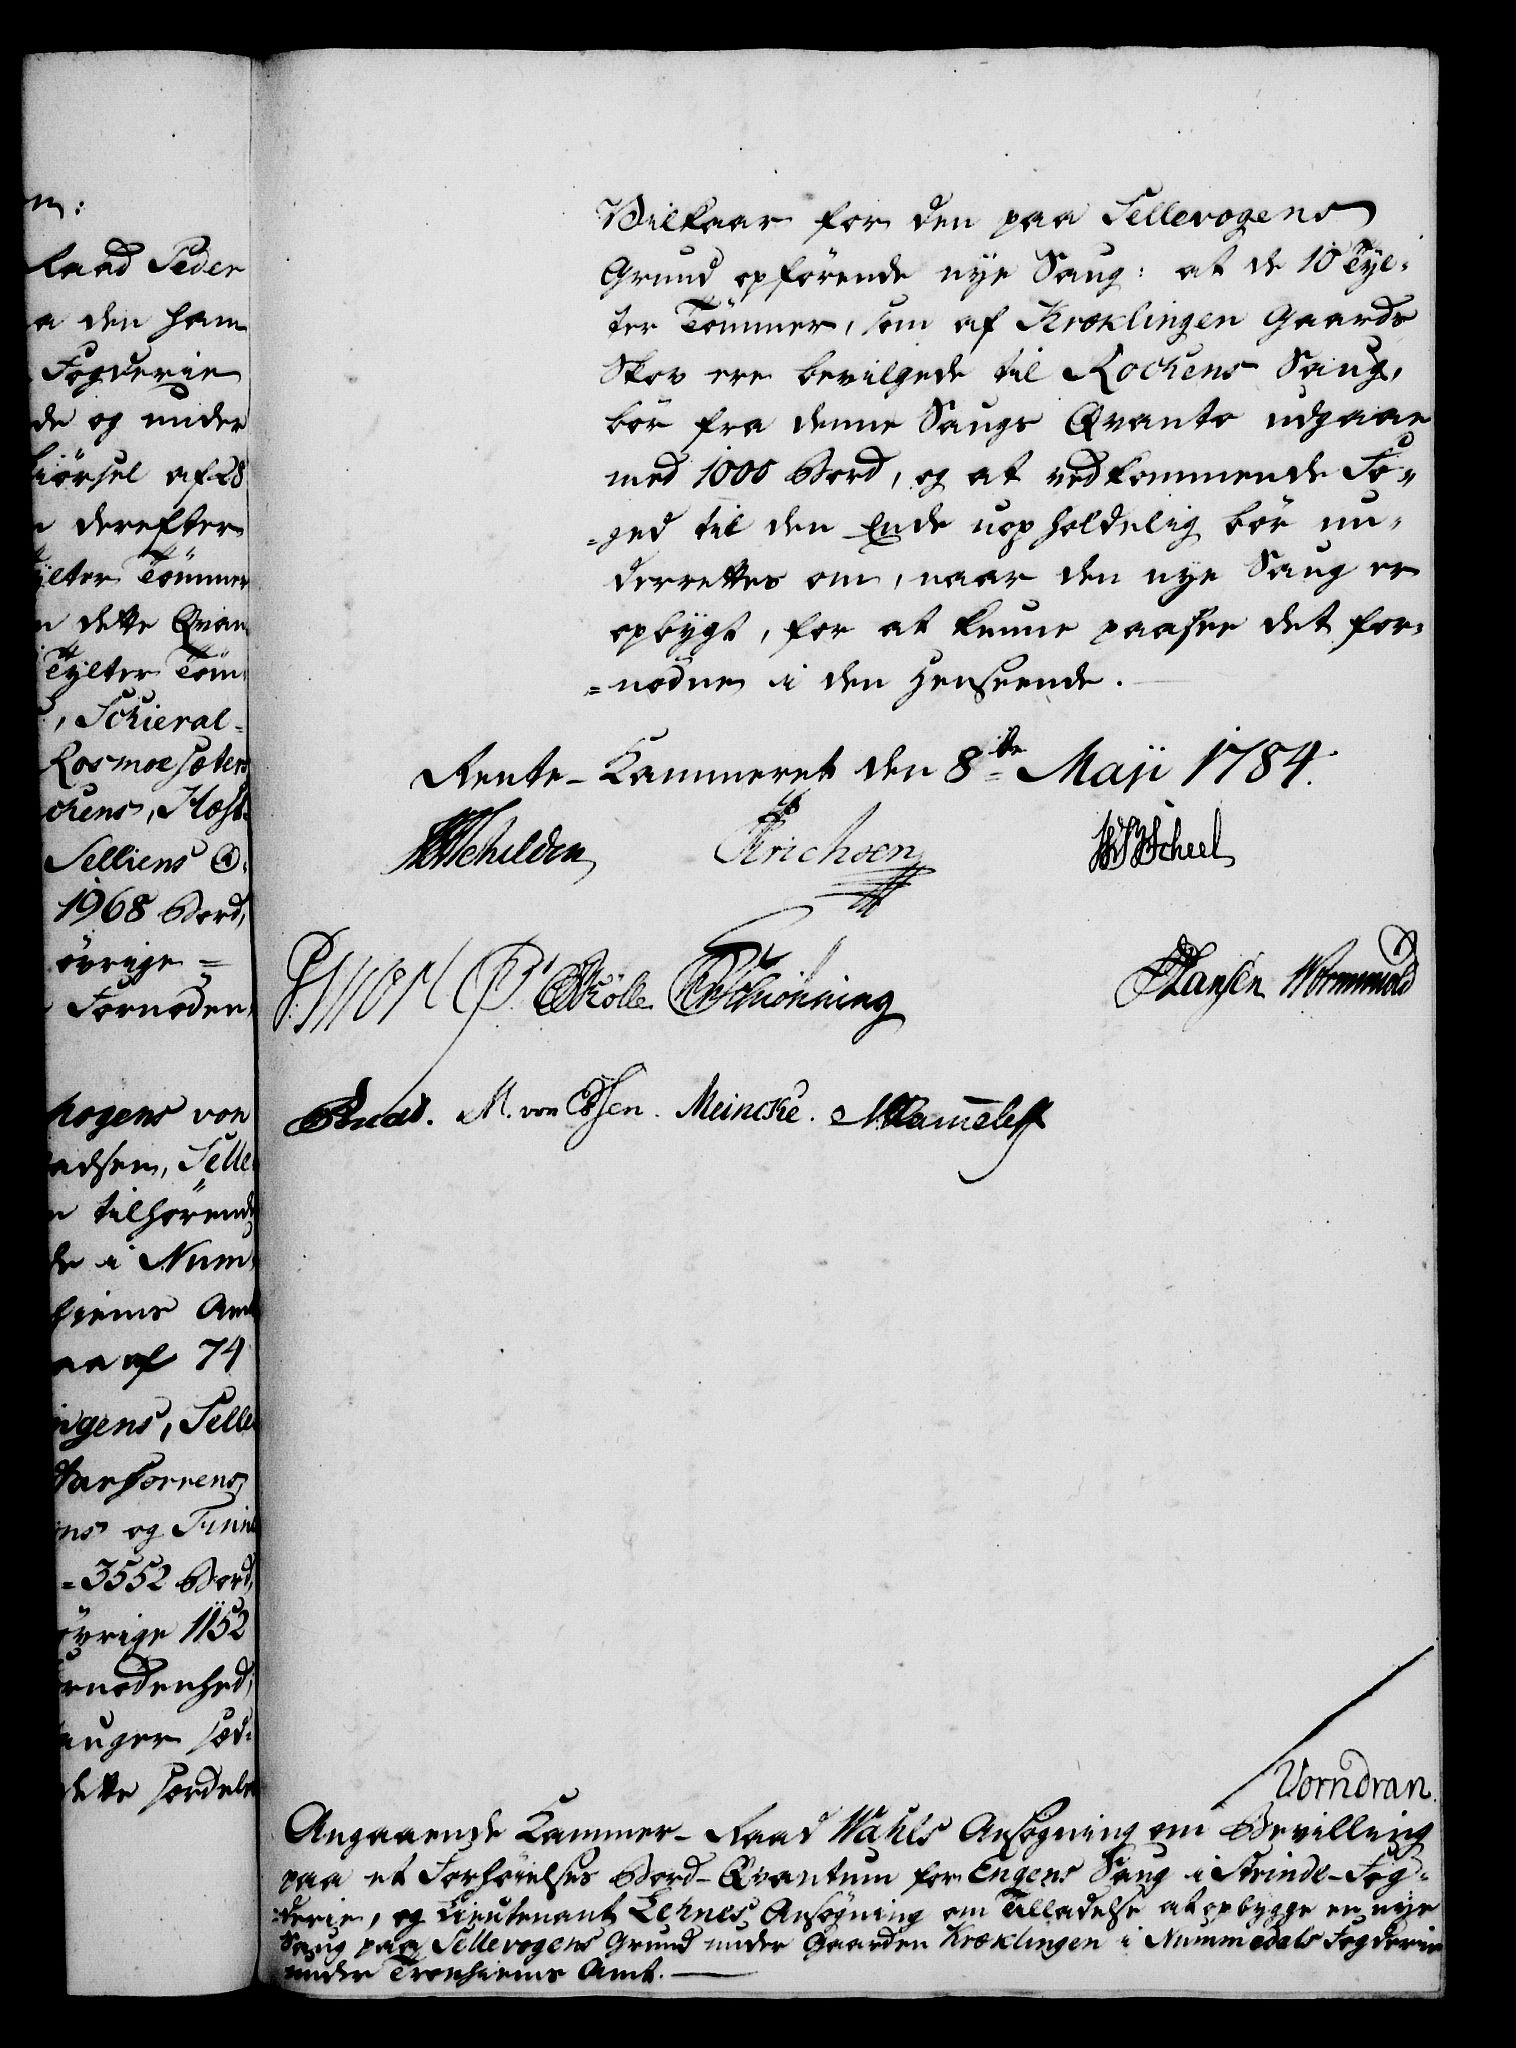 m:
Raad Peder
a den ham
Fogderie
de og under
kiørsel af 28
n derefter
ylter Tømmer
n dette Qvan
Tylter Töm-
, Schieral-
Rosmoesæters
ckens, Høst-
Selliens O-
1968 Bord,
övrige =
Fornøden
Mogens von
adsen, Selle
n tilhörende
de i Num-
hiems Amt
aa af 74
ingens, Selle
ens og Finn
= 3552 Bord,
övrige 1152
ornødenhed,
auger sæd-
dette særdeles
Vilkaar for den paa Sellevogens
Grund opförende nye Saug: at de 10 Tyl-
ter Tömmer, som af Kroklingen Gaards
Skov ere bevilgede til Rockens Saug,
bör fra denne Saugs Qvanto udgaae
med 1000 Bord, og at vedkommende Fo-
=ged til den Ende uopholdelig bör un-
derrettes om, naar den nye Saug er
opbygt, for at kunne paasee det for-
=nödne i den Henseende.
Rente-Kammeret den 8de Maji 1784.
Erichsen Scheel
Schiönning Hansen Wormskiold
M. von Essen. Meincke.
Vorndran.
Angaaende Kammer-Raad Wahls Ansøgning om Bevilling
paa et Forhöielses Bord-Qvantum for Engens Saug i Strinde-Fog-
=derie, og Lieutenant Lehnes Ansögning om Tilladelse at opbygge en nye
Saug paa Sellevogens Grund under Gaarden Kroklingen i Nummedals Fogderie
under Tronhiems Amt.